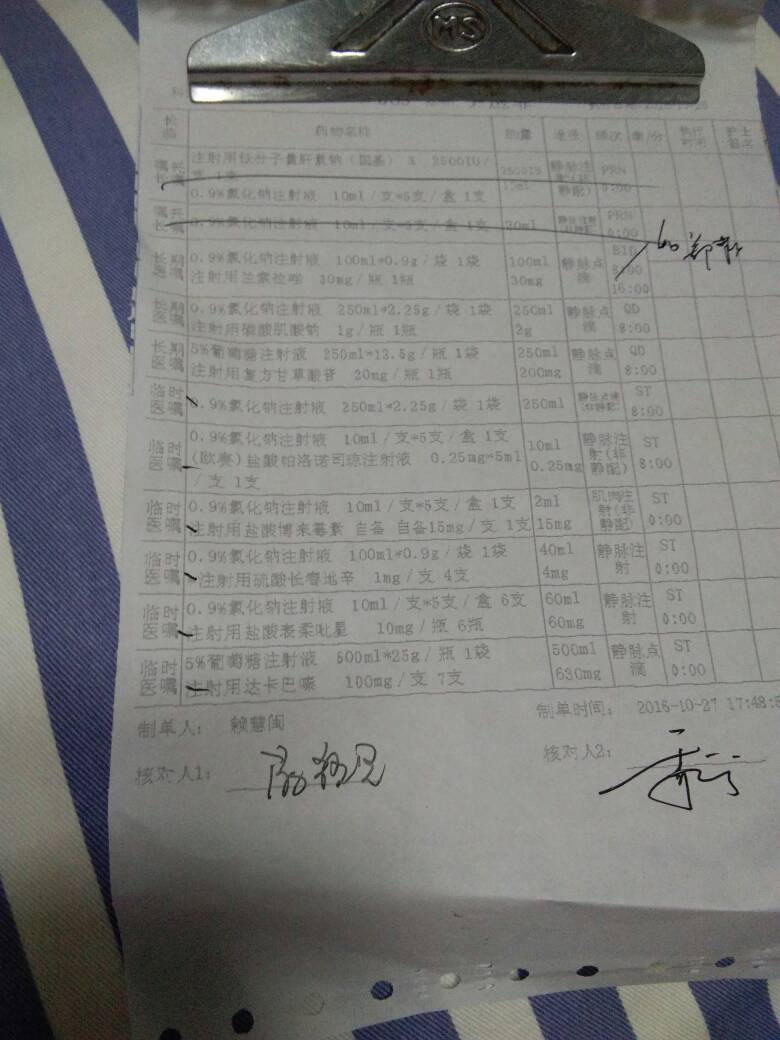 MS
长
临
药物名称
剂量
途径
频次
执行
时间
护士
签名
注射用低分子量肝素钠(国基) X 2500IU/
支 1支
2500IU
PRN
0:00
0.9%氯化钠注射液 10ml/支*5支/盒 1支
10ml
0.9%氯化钠注射液 10ml/支*5支/盒 1支
20ml
PRN
0:00
长期
医嘱
0.9%氯化钠注射液 100ml*0.9g/袋 1袋
注射用兰索拉唑 30mg/瓶 1瓶
100ml
30mg
静脉点
滴
BID
8:00
16:00
长期
医嘱
0.9%氯化钠注射液 250ml*2.25g/袋 1袋
注射用磷酸肌酸钠 1g/瓶 1瓶
250ml
2g
静脉点
滴
QD
8:00
长期
医嘱
5%葡萄糖注射液 250ml*12.5g/瓶 1袋
注射用复方甘草酸苷 20mg/瓶 1瓶
250ml
200mg
静脉点
滴
QD
8:00
临时
医嘱
0.9%氯化钠注射液 250ml*2.25g/袋 1袋
250ml
ST
8:00
临时
医嘱
0.9%氯化钠注射液 10ml/支*5支/盒 1支
(欧赛)盐酸帕洛诺司琼注射液 0.25mg*5ml
/支 1支
10ml
0.25mg
静脉注
射(非
静配)
ST
8:00
临时
医嘱
0.9%氯化钠注射液 10ml/支*5支/盒 1支
注射用盐酸博来霉素 自备 自备15mg/支 1支
2ml
15mg
肌肉注
射(非
静配)
ST
0:00
临时
医嘱
0.9%氯化钠注射液 100ml*0.9g/袋 1袋
注射用硫酸长春地辛 1mg/支 4支
40ml
4mg
静脉注
射
ST
0:00
临时
医嘱
0.9%氯化钠注射液 10ml/支*5支/盒 6支
注射用盐酸表柔吡星 10mg/瓶 6瓶
60ml
60mg
静脉注
射
ST
0:00
临时
医嘱
5%葡萄糖注射液 500ml*25g/瓶 1袋
注射用达卡巴嗪 100mg/支 7支
500ml
630mg
静脉点
滴
ST
0:00
制单人: 赖慧闽
制单时间: 2015-10-27 17:48:5
核对人1:
核对人2: